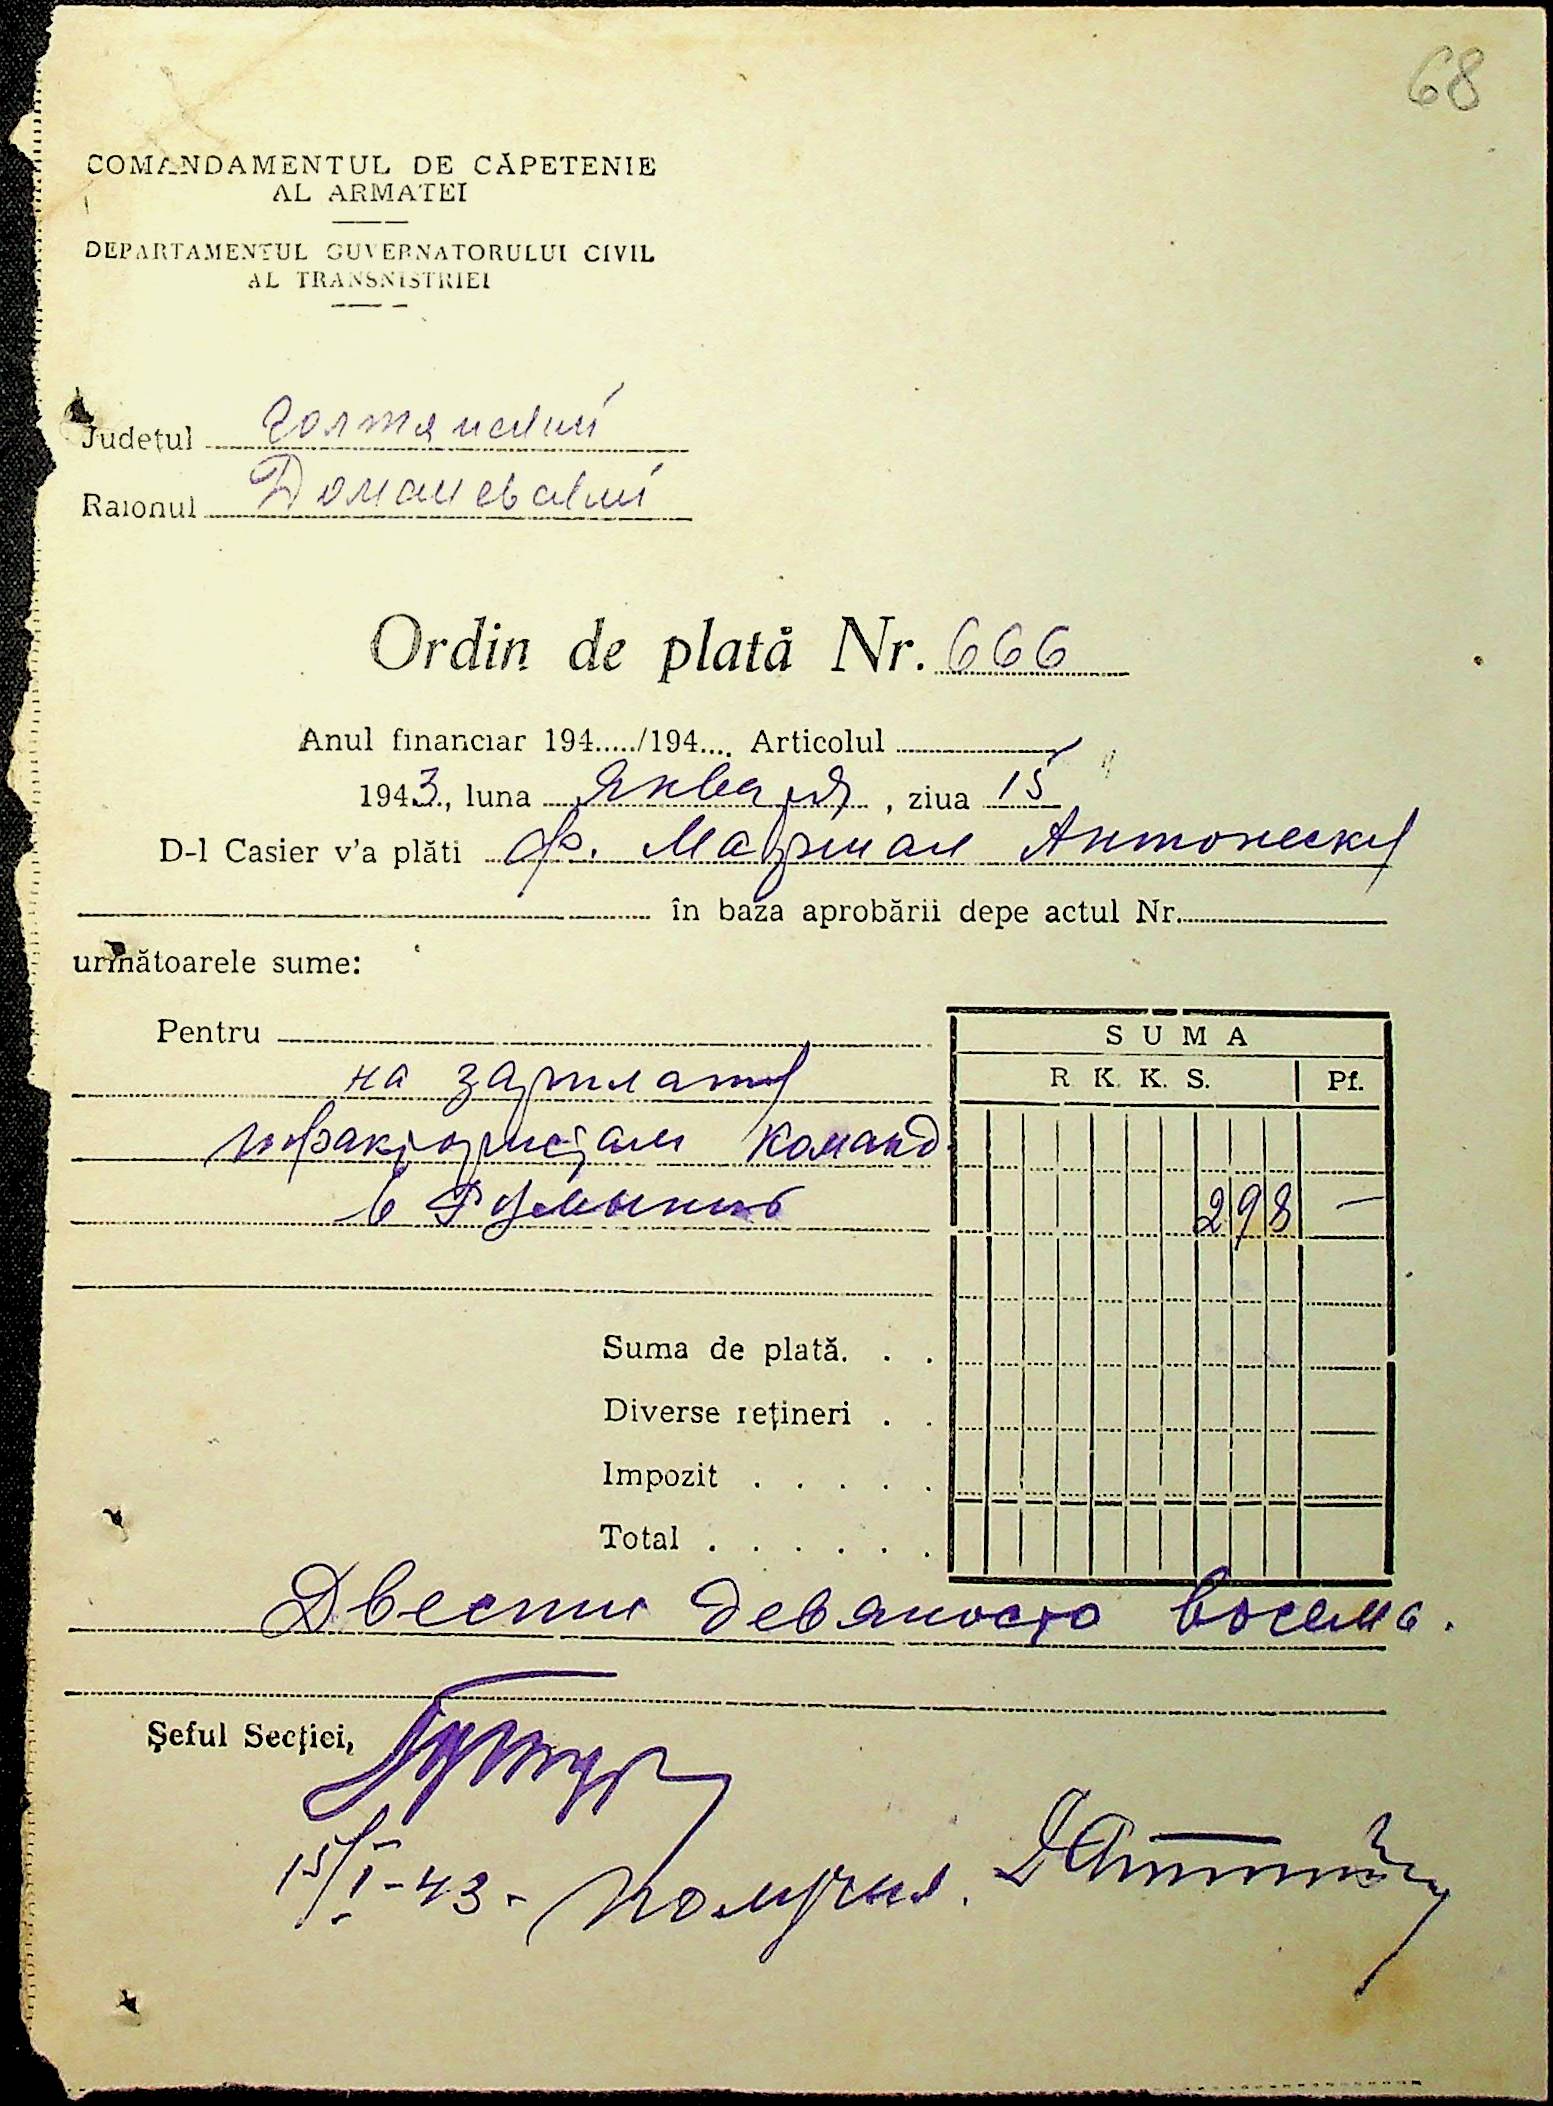 68
COMANDAMENTUL DE CĂPETENIE
AL ARMATEI
DEPARTAMENTUL GUVERNATORULUI CIVIL
AL TRANSNISTRIEI
Județul Голтянский
Raionul Доманевский
Ordin de plată Nr. 666
Anul financiar 194...../194.... Articolul
1943., luna Января , ziua 15
D-l Casier v'a plăti ф. Маршал Антонеску
în baza aprobării depe actul Nr.
următoarele sume:
Pentru
SUMA
на зарплату
R K. K. S. Pf.
трактористам команд
в Румынию 298 —
Suma de plată. . .
Diverse rețineri . .
Impozit . . . . .
Total . . . . . .
Двести девяносто восемь.
Șeful Secției,
15/I-43- Получил.